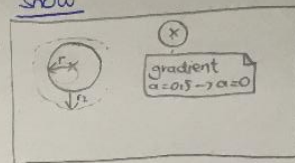 show
r
r2
x
gradient
a=0,5→a=0